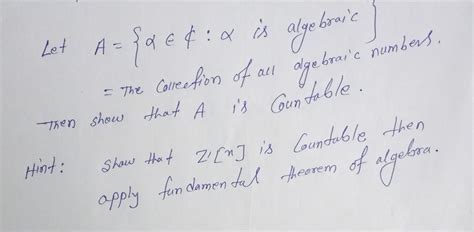 Let A = { α ∈ ₵ : α is algebraic }
= The Collection of all algebraic numbers.
Then show that A is Countable.
Hint: Show that Z[x] is Countable then
apply fundamental theorem of algebra.